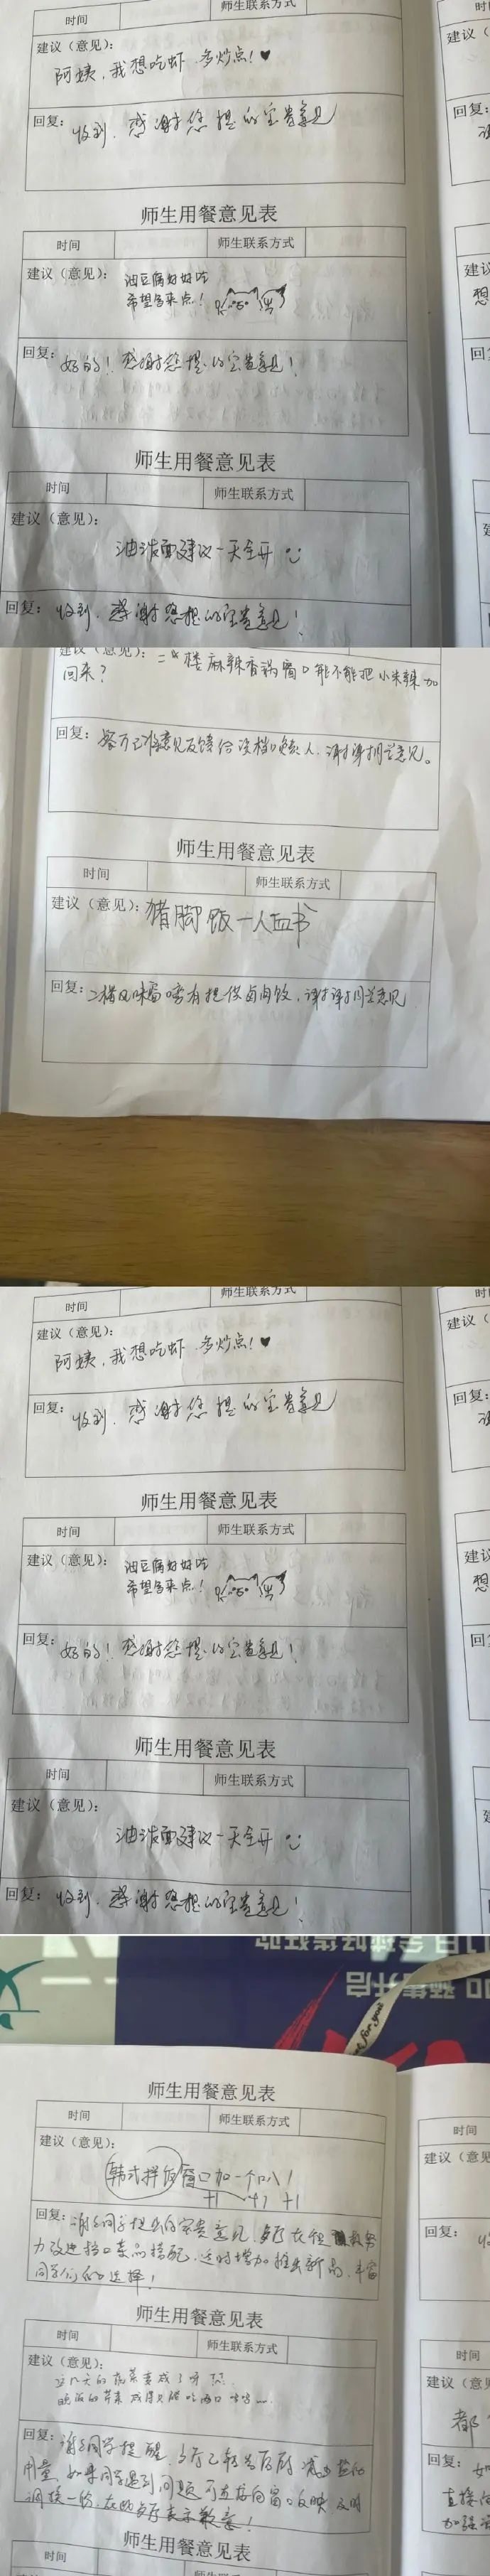 时间
师生联系方式
时
建议（意见）：
建议（
阿姨，我想吃虾，多炒点！♥
回复：
收到，感谢您提的宝贵意见
回复：
师生用餐意见表
时间
师生联系方式
建议（意见）：
油豆腐好好吃
希望多来点！
建议
想
回复：
好的！感谢您提的宝贵意见！
回
师生用餐意见表
时间
师生联系方式
建议（意见）：
油泼面建议一天全开
回复：
收到，感谢您提的宝贵意见！
建议（意见）：
二楼麻辣香锅窗口能不能把小米辣加
回来？
回复：
餐厅已将意见反馈给该档口负责人，谢谢同学意见。
师生用餐意见表
时间
师生联系方式
建议（意见）：
猪脚饭一人血书
回复：
二楼风味窗口有提供卤肉饭，谢谢同学意见
时间
师生联系方式
时
建议（意见）：
建议（
阿姨，我想吃虾，多炒点！♥
回复：
收到，感谢您提的宝贵意见
回复：
师生用餐意见表
时间
师生联系方式
建议（意见）：
油豆腐好好吃
希望多来点！
建议
想
回复：
好的！感谢您提的宝贵意见！
回
师生用餐意见表
时间
师生联系方式
建议（意见）：
油泼面建议一天全开
回复：
收到，感谢您提的宝贵意见！
预售开启
师生用餐意见表
时间
师生联系方式
时间
建议（意见）：
建议（意见
韩式拌饭窗口加一个
+1 +1 +1
回复：
谢谢同学提出的宝贵意见，餐厅
力改进档口菜品搭配，适时增加推出新品，丰富
同学们的选择！
回复：
师生用餐意见表
时间
师生联系方式
时间
建议（意见）：
建议（意见
这几天的蔬菜
都
回复：
谢谢同学提醒，餐厅已转告后厨减少盐的
用量，如果同学遇到问题可直接向窗口反映及时
调换一份，在此餐厅表示歉意！
回复：
直接向
加强
师生用餐意见表
时间
师生联系方式